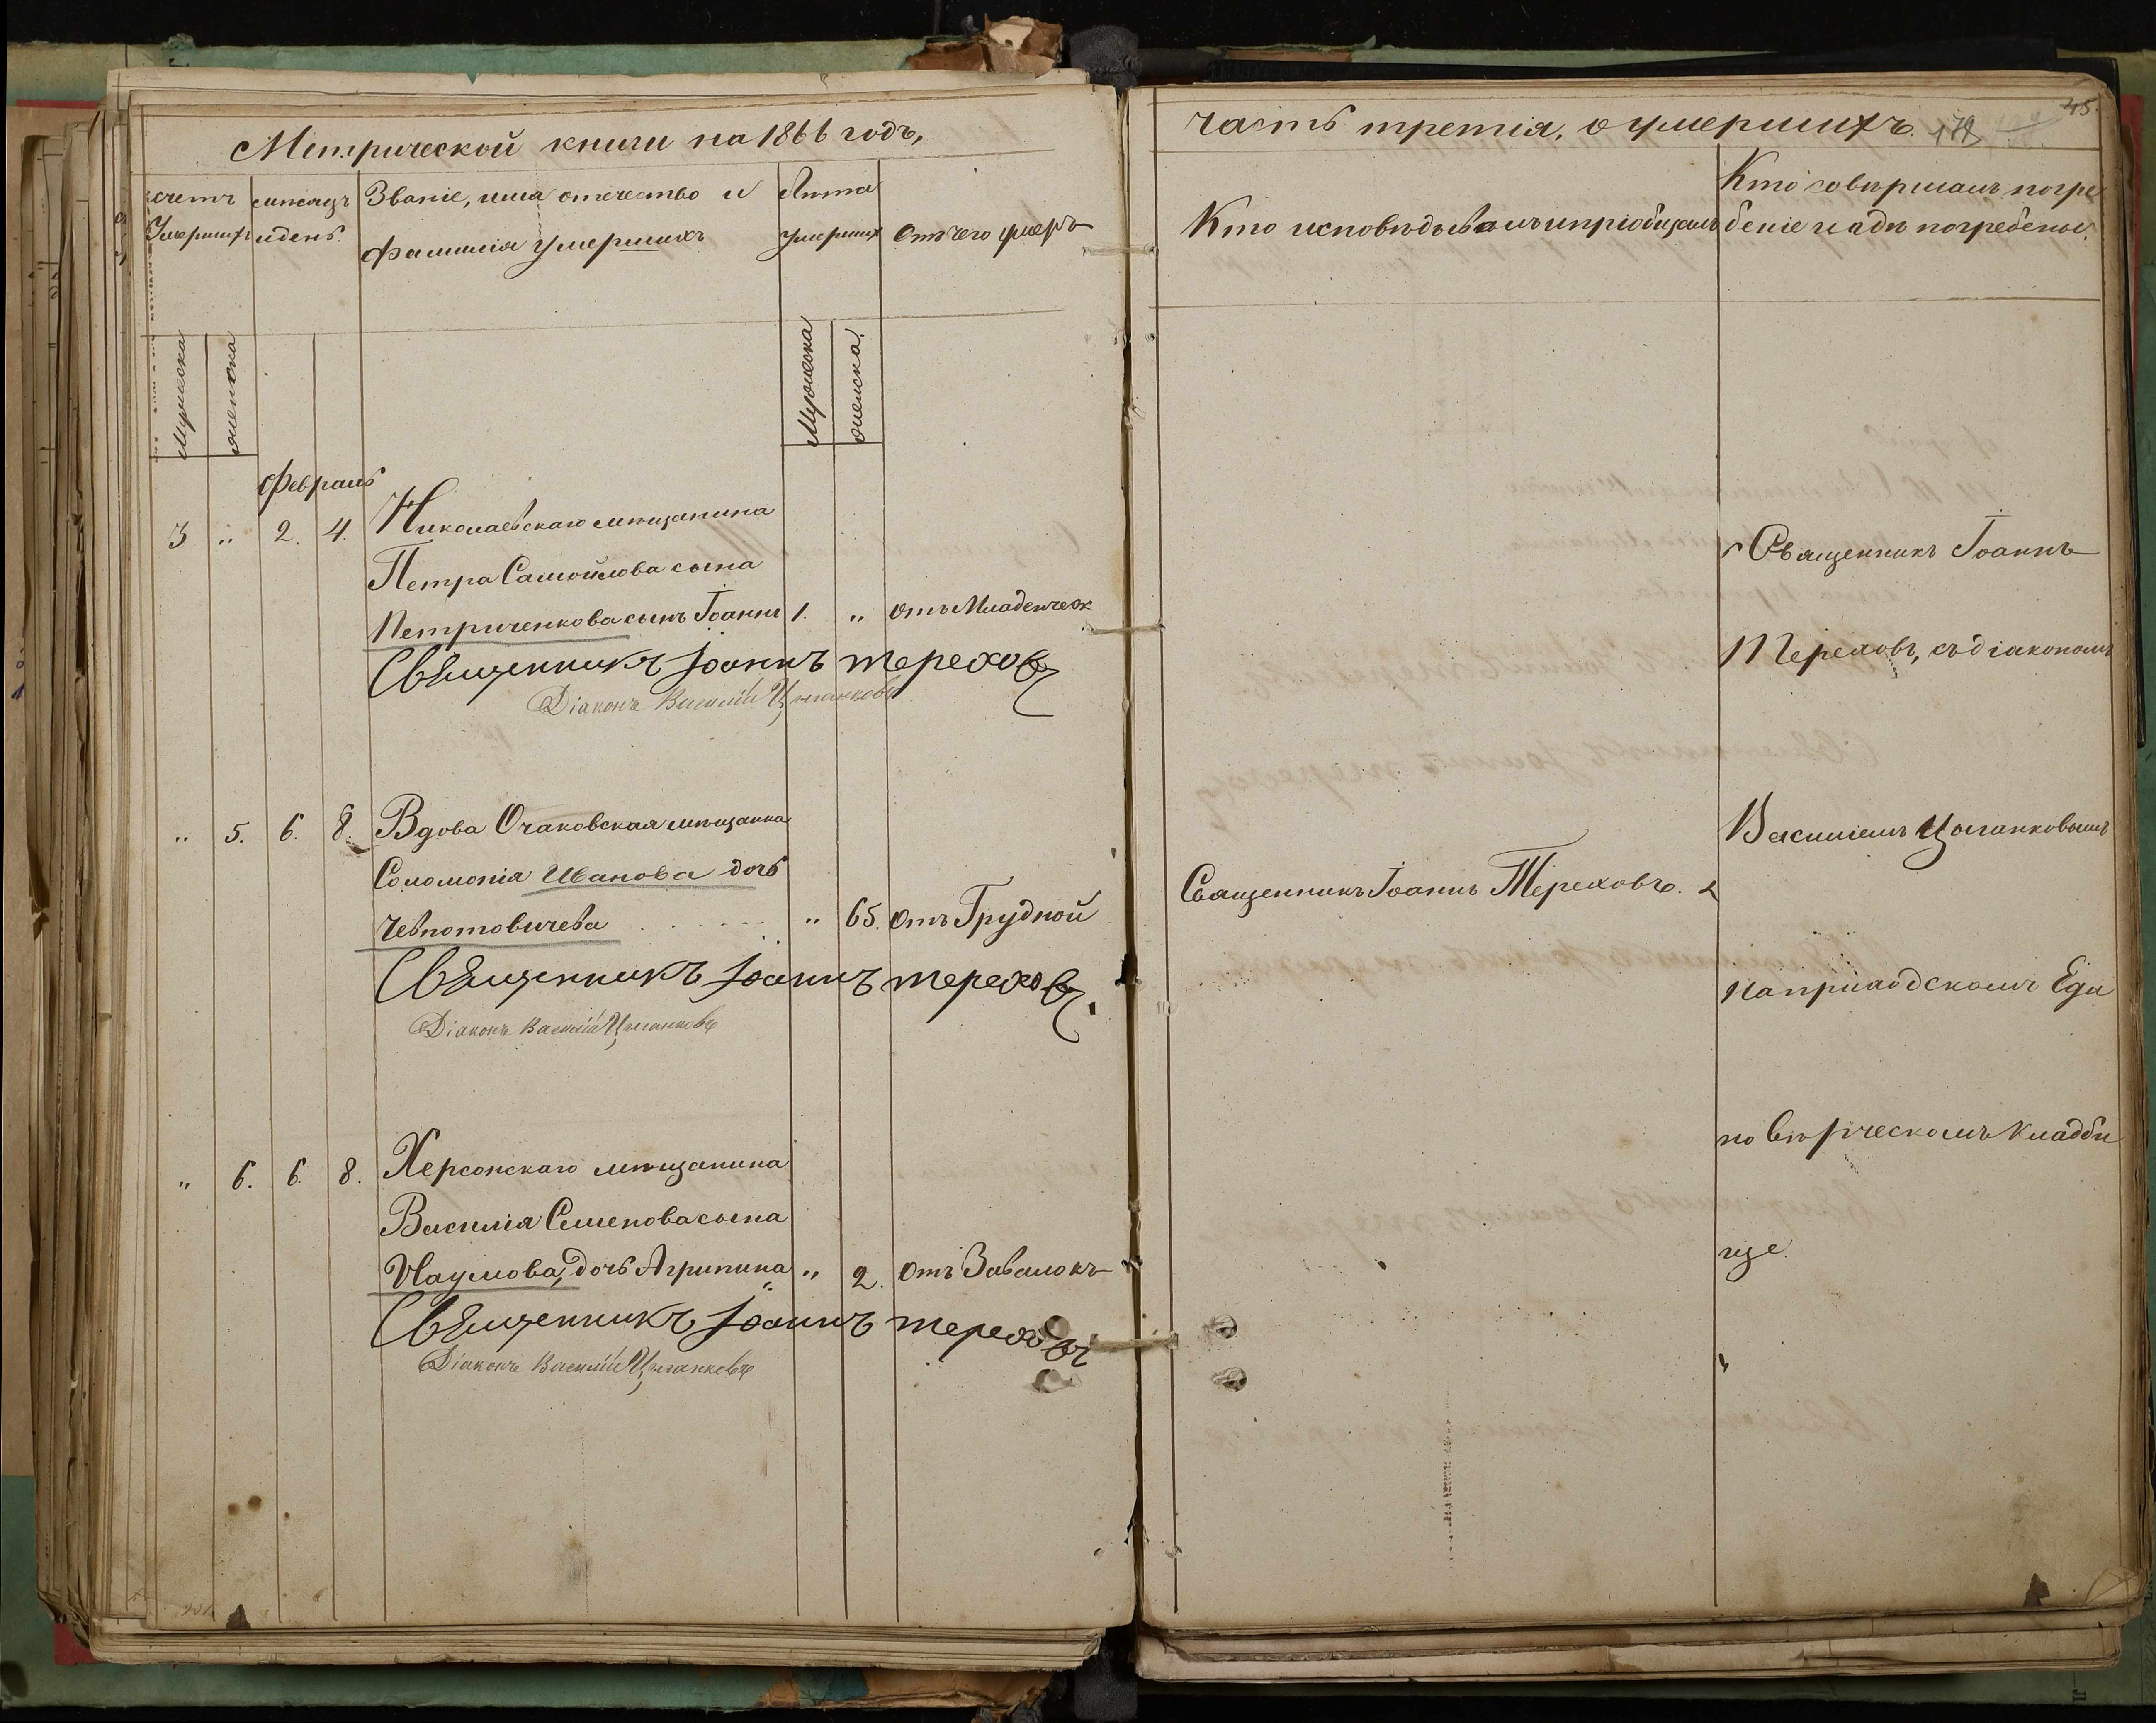 Метрической книги на 1866 годъ,
счетъ Умершихъ
мѣсяцъ и день.
Званіе, имя отечество и
фамилія умершихъ
Лѣта
умерших
Отъ чего умеръ
Мужеска
женска
Мужеска
женска
Февраль
3 „ 2. 4. Николаевскаго мѣщанина
Петра Самойлова сына
Петриченкова сынъ Іоаннъ 1. „ отъ Младенческ
Священникъ Іоаннъ Тереховъ
Діаконъ Василій Цыганковъ
„ 5. 6. 8. Вдова Очаковская мѣщанка
Соломонія Иванова дочь
Чевпотовичева „ 65. отъ Грудной
Священникъ Іоаннъ Тереховъ
Діаконъ Василій Цыганковъ
„ 6. 6. 8. Херсонскаго мѣщанина
Василія Семенова сына
Наумова, дочь Агрипина „ 2. отъ Завалокъ
Священникъ Іоаннъ Тереховъ
Діаконъ Василій Цыганковъ
часть третія, о умершихъ.
45.
Кто исповѣдывалъ и пріобщалъ
Кто совѣршалъ погре
беніе и гдѣ погребены.
Священникъ Іоаннъ
Тереховъ, съ діакономъ
Василіемъ Цыганковымъ
Священникъ Іоаннъ Тереховъ.
на приходскомъ Еди
новѣрческомъ кладби
ще.